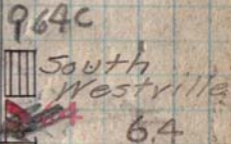 964C
South
Westville
64
64